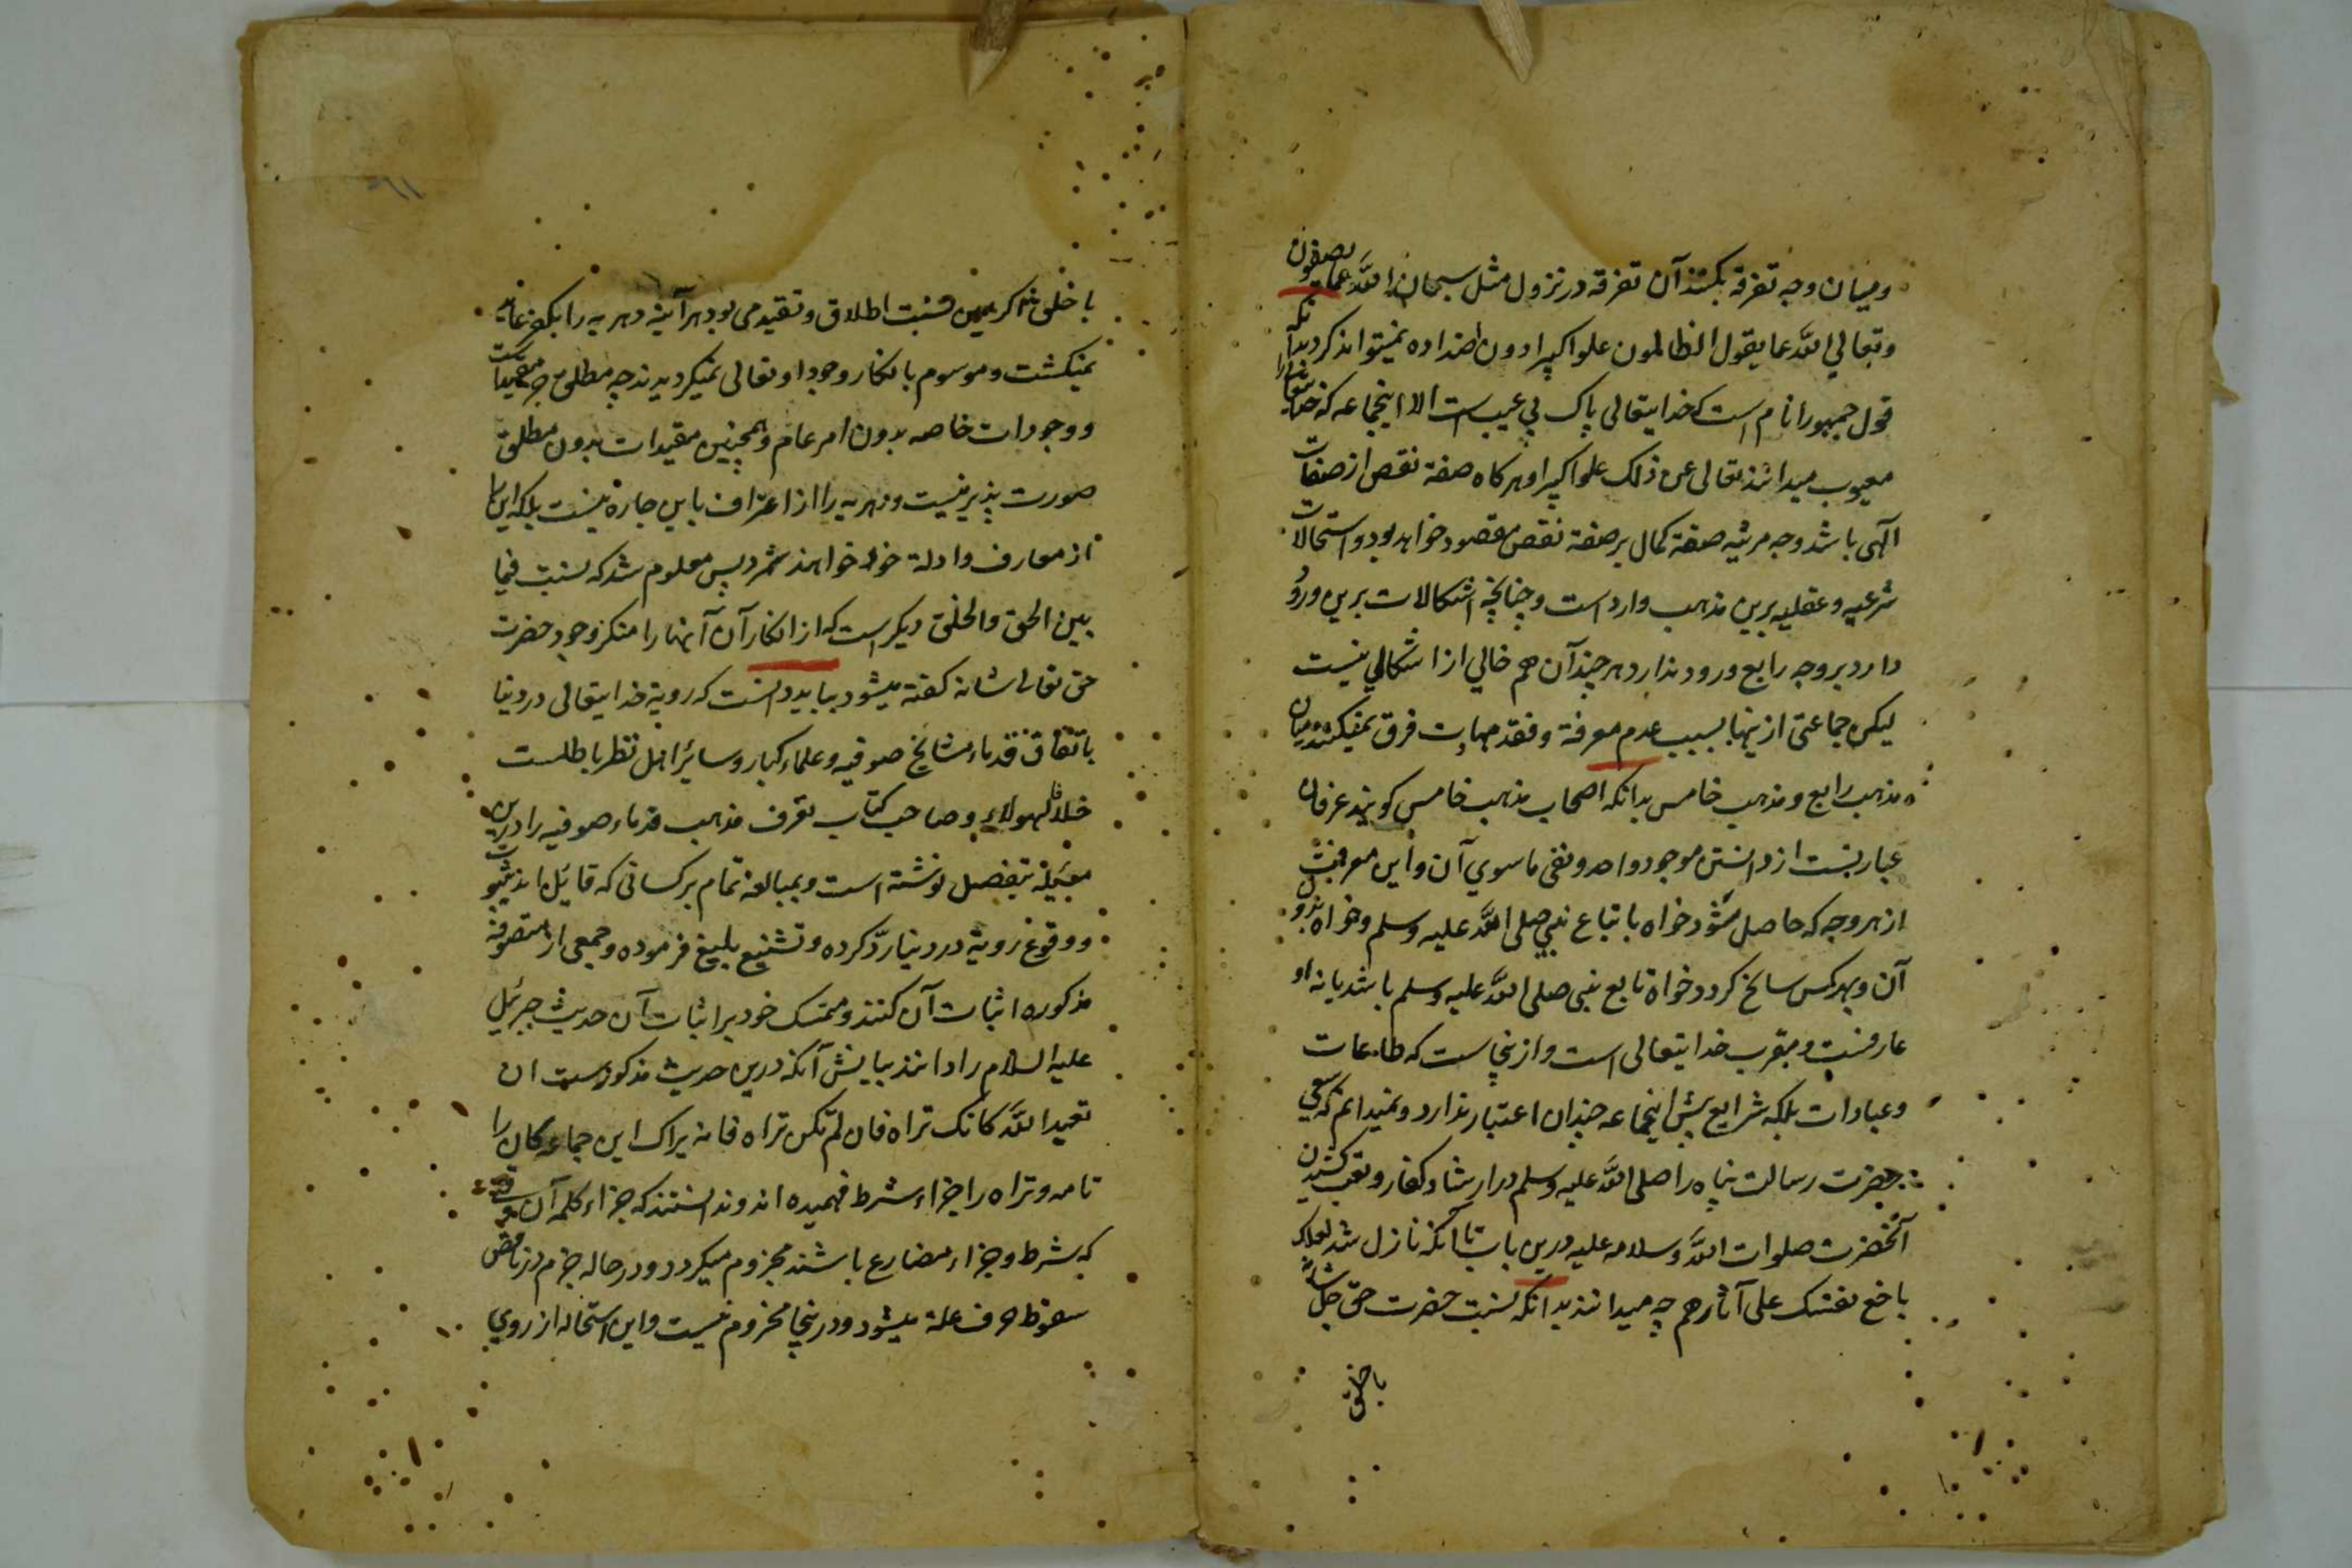 ومیان وجه تفرقه بکنند آن تفرقه در نزول مثل سبحان الله عما یصفون
وتعالی الله عما یقول الظالمون علوا کبیرا دون اضداده نمیتوانند کرد بدآنکه
قول جمهور انام است که خدایتعالی پاک بی عیب است الا اینجماعه که خدایتعالی را
معیوب میدانند تعالی عن ذلک علوا کبیرا وهر کاه صفة نقص از صفات
آلهی باشد وجه مرتبه صفة کمال بر صفة نقص مقصود خواهد بود واستحالات
شرعیه وعقلیه برین مذهب وارد است وچنانچه اشکالات برین ورود
دارد بر وجه رابع ورود ندارد هر چند آن هم خالی از اشکالی نیست
لیکن جماعتی ازینها بسبب عدم معرفة وفقد مهارت فرق نمیکنند میان
مذهب رابع ومذهب خامس بدانکه اصحاب مذهب خامس کویند عرفان
عبارتست از دانستن موجود واحد ونفی ماسوی آن واین معرفت
از هر وجه که حاصل شود خواه باتباع نبی صلی الله علیه وسلم وخواه بدون
آن وبهر کس سانح کردد خواه تابع نبی صلی الله علیه وسلم باشد یا نه او
عارفست ومقرب خدایتعالی است وازینجاست که طاعات
وعبادات بلکه شرایع پیش اینجماعه چندان اعتبار ندارد ونمیدانم که سعی
حضرت رسالت پناه را صلی الله علیه وسلم در ارشاد کفار وتعب کشیدن
آنحضرت صلوات الله وسلامه علیه درین باب تا آنکه نازل شد لعلک
باخع نفسک علی آثارهم چه میدانند بدانکه نسبت حضرت حق جل شانه
با خلق
با خلق اکر همین نسبت اطلاق وتقید می بود هر آینه دهریه را بکفر
نمیکشت وموسوم بانکار وجود او تعالی نمیکردیدند چه مطلق بی مقیدات
ووجودات خاصه بدون امر عام وهمچنین مقیدات بدون مطلق
صورت پذیر نیست ودهریه را از اعتراف باین چاره نیست بلکه این را
از معارف وادله خود خواهند شمرد پس معلوم شد که نسبت فیما
بین الحق والخلق دیکر است که از انکار آن آنها را منکر وجود حضرت
حق تعالی شانه کفته میشود بباید دانست که رویة خدایتعالی در دنیا
باتفاق قدماء مشایخ صوفیه وعلماء کبار وسائر اهل نظر باطلست
خلافا لهولاء وصاحب کتاب تعرف مذهب قدماء صوفیه را درین
مسئله بتفصیل نوشته است وبمبالغه تمام بر کسانی که قائل اند ثبوت
ووقوع رویة در دنیا رد کرده وتشنیع بلیغ فرموده وجمعی از متصوفه
مذکوره اثبات آن کنند ومتمسک خود بر اثبات آن حدیث جبرئیل
علیه السلام را دانند بیانش آنکه درین حدیث مذکورست ان
تعبد الله کانک تراه فان لم تکن تراه فانه یراک این جماعه کان را
تامه وتراه را جزاء شرط فهمیده اند وندانستند که جزاء کلمه آن
که شرط وجزاء مضارع باشند مجزوم میکردد ودر حاله جزم در ناقص
سقوط حرف علة میشود ودرینجا مجزوم نیست واین استحاله از روی